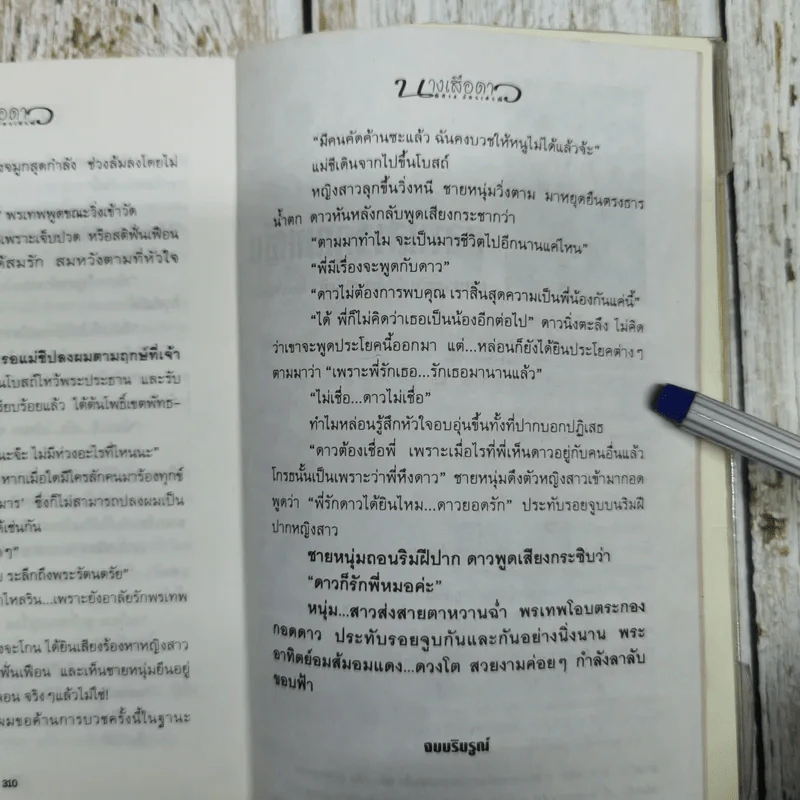 อดาว
งจมูกสุดกำลัง ช่วงล้มลงโดยไม่
พรเทพพูดขณะวิ่งเข้าวัด
เพราะเจ็บปวด หรือสติฟั่นเฟือน
ด้สมรัก สมหวังตามที่หัวใจ
รอแม่ชีปลงผมตามฤกษ์ที่เจ้า
นโบสถ์ไหว้พระประธาน และรับ
รียบร้อยแล้ว ใต้ต้นโพธิ์เขตพัทธ-
นะจ๊ะ ไม่มีห่วงอะไรที่ไหนนะ”
หากเมื่อใดมีใครสักคนมาร้องทุกข์
มาร’ ซึ่งก็ไม่สามารถปลงผมเป็น
ด้เช่นกัน
ๆ”
ระลึกถึงพระรัตนตรัย”
าไหลริน...เพราะยังอาลัยรักพรเทพ
งจะโกน ได้ยินเสียงร้องหาหญิงสาว
ฟั่นเฟือน และเห็นชายหนุ่มยืนอยู่
ลอน จริงๆแล้วไม่ใช่!
ผมขอค้านการบวชครั้งนี้ในฐานะ
310
นางเสือดาว
“มีคนคัดค้านซะแล้ว ฉันคงบวชให้หนูไม่ได้แล้วจ้ะ”
แม่ชีเดินจากไปขึ้นโบสถ์
หญิงสาวลุกขึ้นวิ่งหนี ชายหนุ่มวิ่งตาม มาหยุดยืนตรงธาร
น้ำตก ดาวหันหลังกลับพูดเสียงกระชากว่า
“ตามมาทำไม จะเป็นมารชีวิตไปอีกนานแค่ไหน”
“พี่มีเรื่องจะพูดกับดาว”
“ดาวไม่ต้องการพบคุณ เราสิ้นสุดความเป็นพี่น้องกันแค่นี้”
“ได้ พี่ก็ไม่คิดว่าเธอเป็นน้องอีกต่อไป” ดาวนิ่งตะลึง ไม่คิด
ว่าเขาจะพูดประโยคนี้ออกมา แต่...หล่อนก็ยังได้ยินประโยคต่างๆ
ตามมาว่า “เพราะพี่รักเธอ...รักเธอมานานแล้ว”
“ไม่เชื่อ...ดาวไม่เชื่อ”
ทำไมหล่อนรู้สึกหัวใจอบอุ่นขึ้นทั้งที่ปากบอกปฏิเสธ
“ดาวต้องเชื่อพี่ เพราะเมื่อไรที่พี่เห็นดาวอยู่กับคนอื่นแล้ว
โกรธนั้นเป็นเพราะว่าพี่หึงดาว” ชายหนุ่มดึงตัวหญิงสาวเข้ามากอด
พูดว่า “พี่รักดาวได้ยินไหม...ดาวยอดรัก” ประทับรอยจูบบนริมฝี
ปากหญิงสาว
ชายหนุ่มถอนริมฝีปาก ดาวพูดเสียงกระซิบว่า
“ดาวก็รักพี่หมอค่ะ”
หนุ่ม...สาวส่งสายตาหวานฉ่ำ พรเทพโอบตระกอง
กอดดาว ประทับรอยจูบกันและกันอย่างนิ่งนาน พระ
อาทิตย์อมส้มอมแดง...ดวงโต สวยงามค่อยๆ กำลังลาลับ
ขอบฟ้า
จบบริบูรณ์